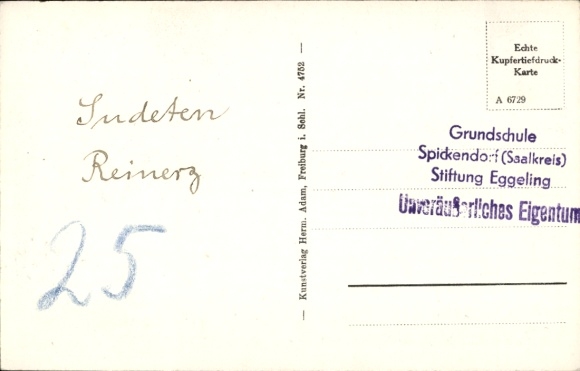 Sudeten
Reinerz
25
— Kunstverlag Herm. Adam, Freiburg i. Schl. Nr. 4752 —
Echte
Kupfertiefdruck-
Karte
A 6729
Grundschule
Spickendorf (Saalkreis)
Stiftung Eggeling
Unveräußerliches Eigentum